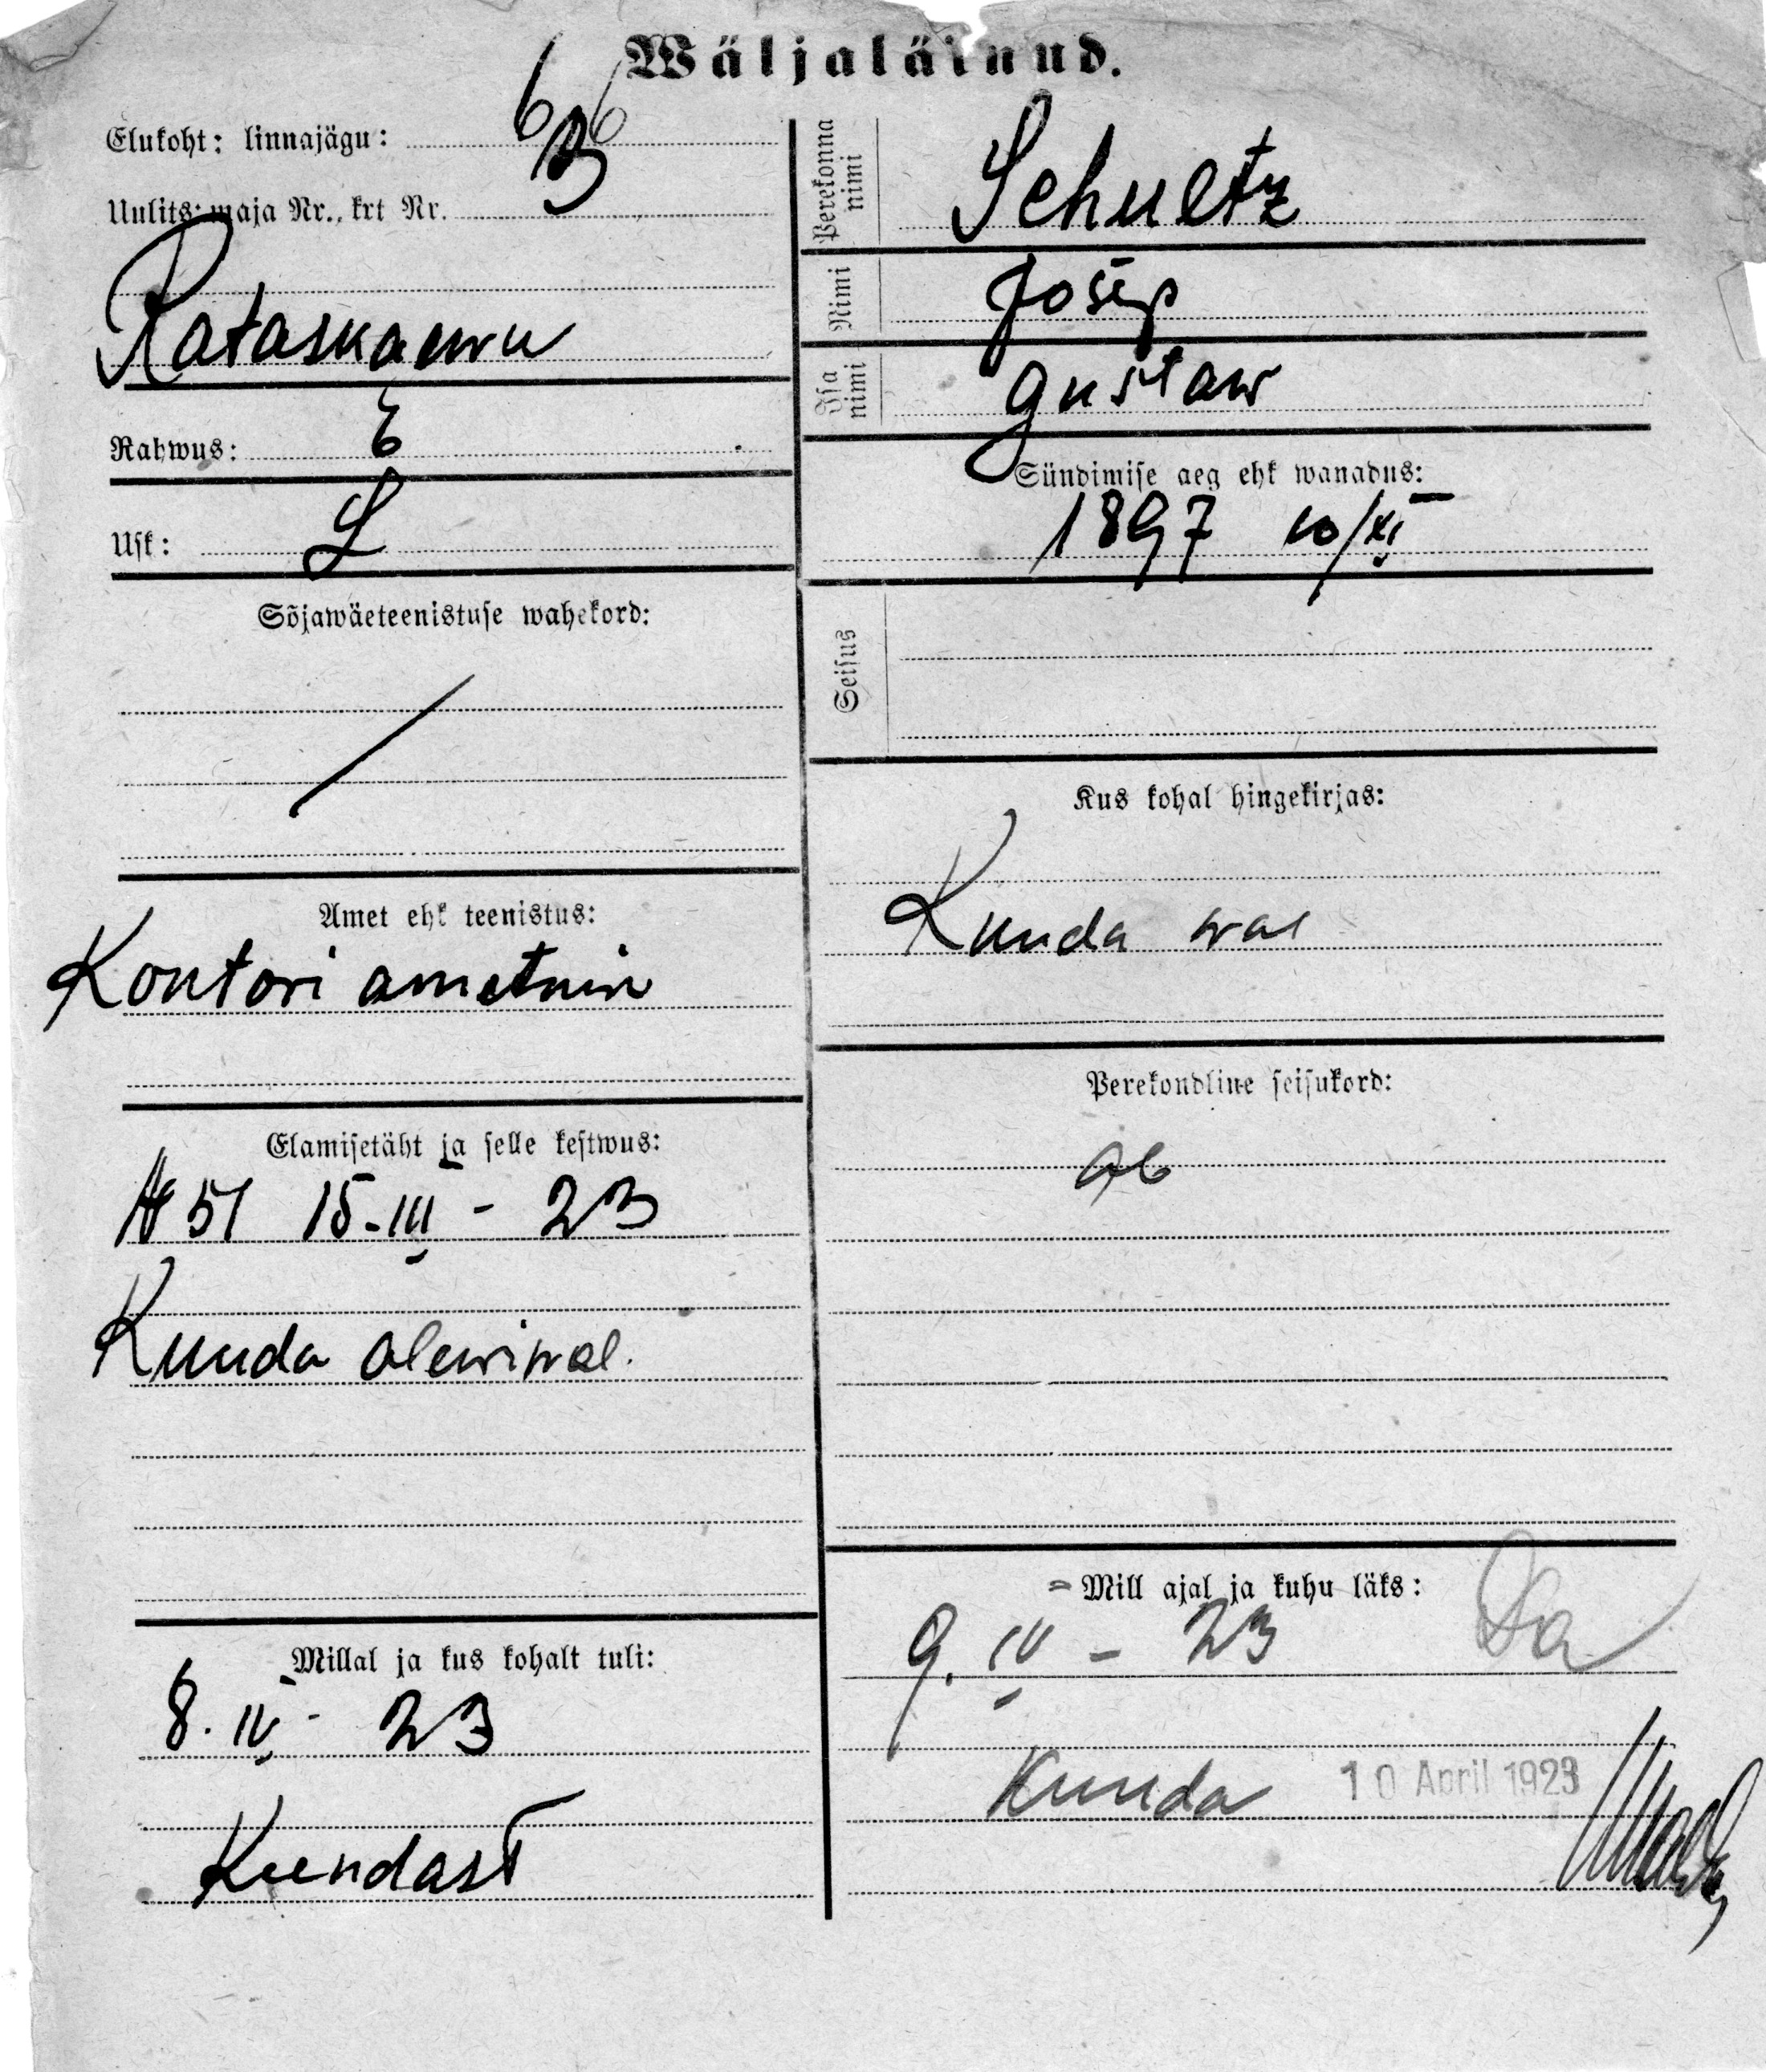 Wäljaläinud.
Elukoht: linnajägu: 6
6
Uulits: maja Nr., krt Nr. 3
Rataskaewu
Rahwus: E
Usk: L
Sõjawäeteenistuse wahekord:
/
Amet ehk teenistus:
Kontori ametnik
Elamisetäht ja selle kestwus:
№ 51 15-III - 23
Kunda alewiwal.
Millal ja kus kohalt tuli:
8. IV - 23
Kundast
Perekonna nimi Schultz
Nimi Josep
Isa nimi Gustaw
Sündimise aeg ehk wanadus:
1897 10/XI
Seisus
Kus kohal hingekirjas:
Kunda wal
Perekondline seisukord:
ab
Mill ajal ja kuhu läks:
9. IV - 23
Kunda 10 April 1923